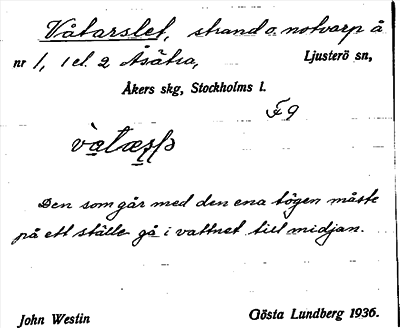 Våtarslet, strand o. notvarp å
nr 1, 1 el. 2 Åsätra, Ljusterö sn,
Åkers skg, Stockholms l.
F9
Den som går med den ena tögen måste
på ett ställe gå i vattnet till midjan.
John Westin Gösta Lundberg 1936.